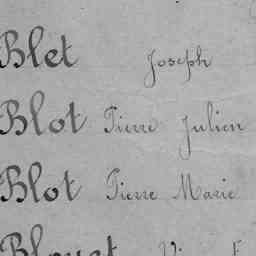 Blet Joseph
Blot Pierre Julien
Blot Pierre Marie
Blouet